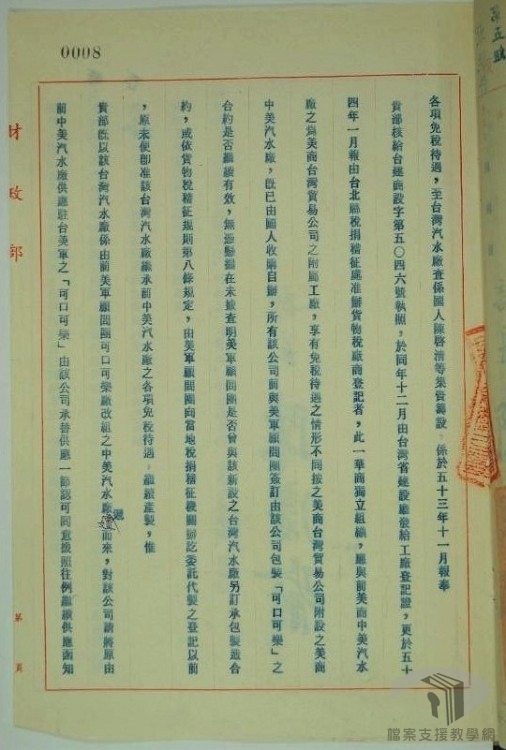 0008
各項免稅待遇，至台灣汽水廠查係國人陳啓清等集資籌設，係於五十三年十一月報奉
貴部核給台建商設字第五〇四六號執照，於同年十二月由台灣省建設廳發給工廠登記證，更於五十
四年一月報由台北縣稅捐稽征處准辦貨物稅廠商登記者，此一華商獨立組織，應與前美商中美汽水
廠之爲美商台灣貿易公司之附屬工廠，享有免稅待遇之情形不同接之美商台灣貿易公司附設之美商
中美汽水廠，旣已由國人收購自辦，所有該公司前與美軍顧問團簽訂由該公司包裝「可口可樂」之
合約是否繼續有效，無憑懸揣在未據查明美軍顧問團是否曾與該新設之台灣汽水廠另訂承包製造合
約，或依貨物稅稽征規則第八條規定，由美軍顧問團向當地稅捐稽征機關辦訖委託代製之登記以前
，原未便卽准該台灣汽水廠繼承前中美汽水廠之各項免稅待遇，繼續產製，惟
貴部旣以該台灣汽水廠係由前美軍顧問團可口可樂廠改組之中美汽水廠遞而來，對該公司請將原由
前中美汽水廠供應駐台美軍之「可口可樂」由該公司承替供應一節認可同意援照往例繼續供應函知
財政部
第 頁
第五號
檔案支援教學網